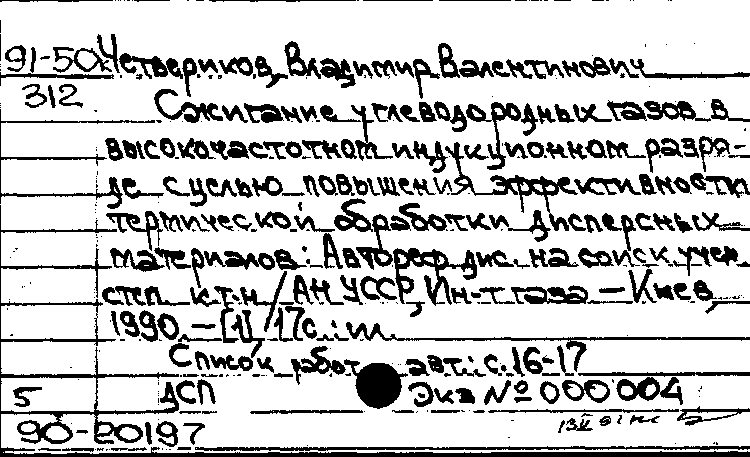 91-50 Четвериков, Владимир Валентинович
312 Сжигание углеводородных газов в
высокочастотном индукционном разря-
де с целью повышения эффективности
термической обработки дисперсных
материалов: Автореф. дис. на соиск. учен.
степ. к.т.н / АН УССР, Ин-т газа. — Киев,
1990. — [1], 17с.: ил.
Список работ авт.: с. 16-17
5 ДСП Экз № 000004
90-20197